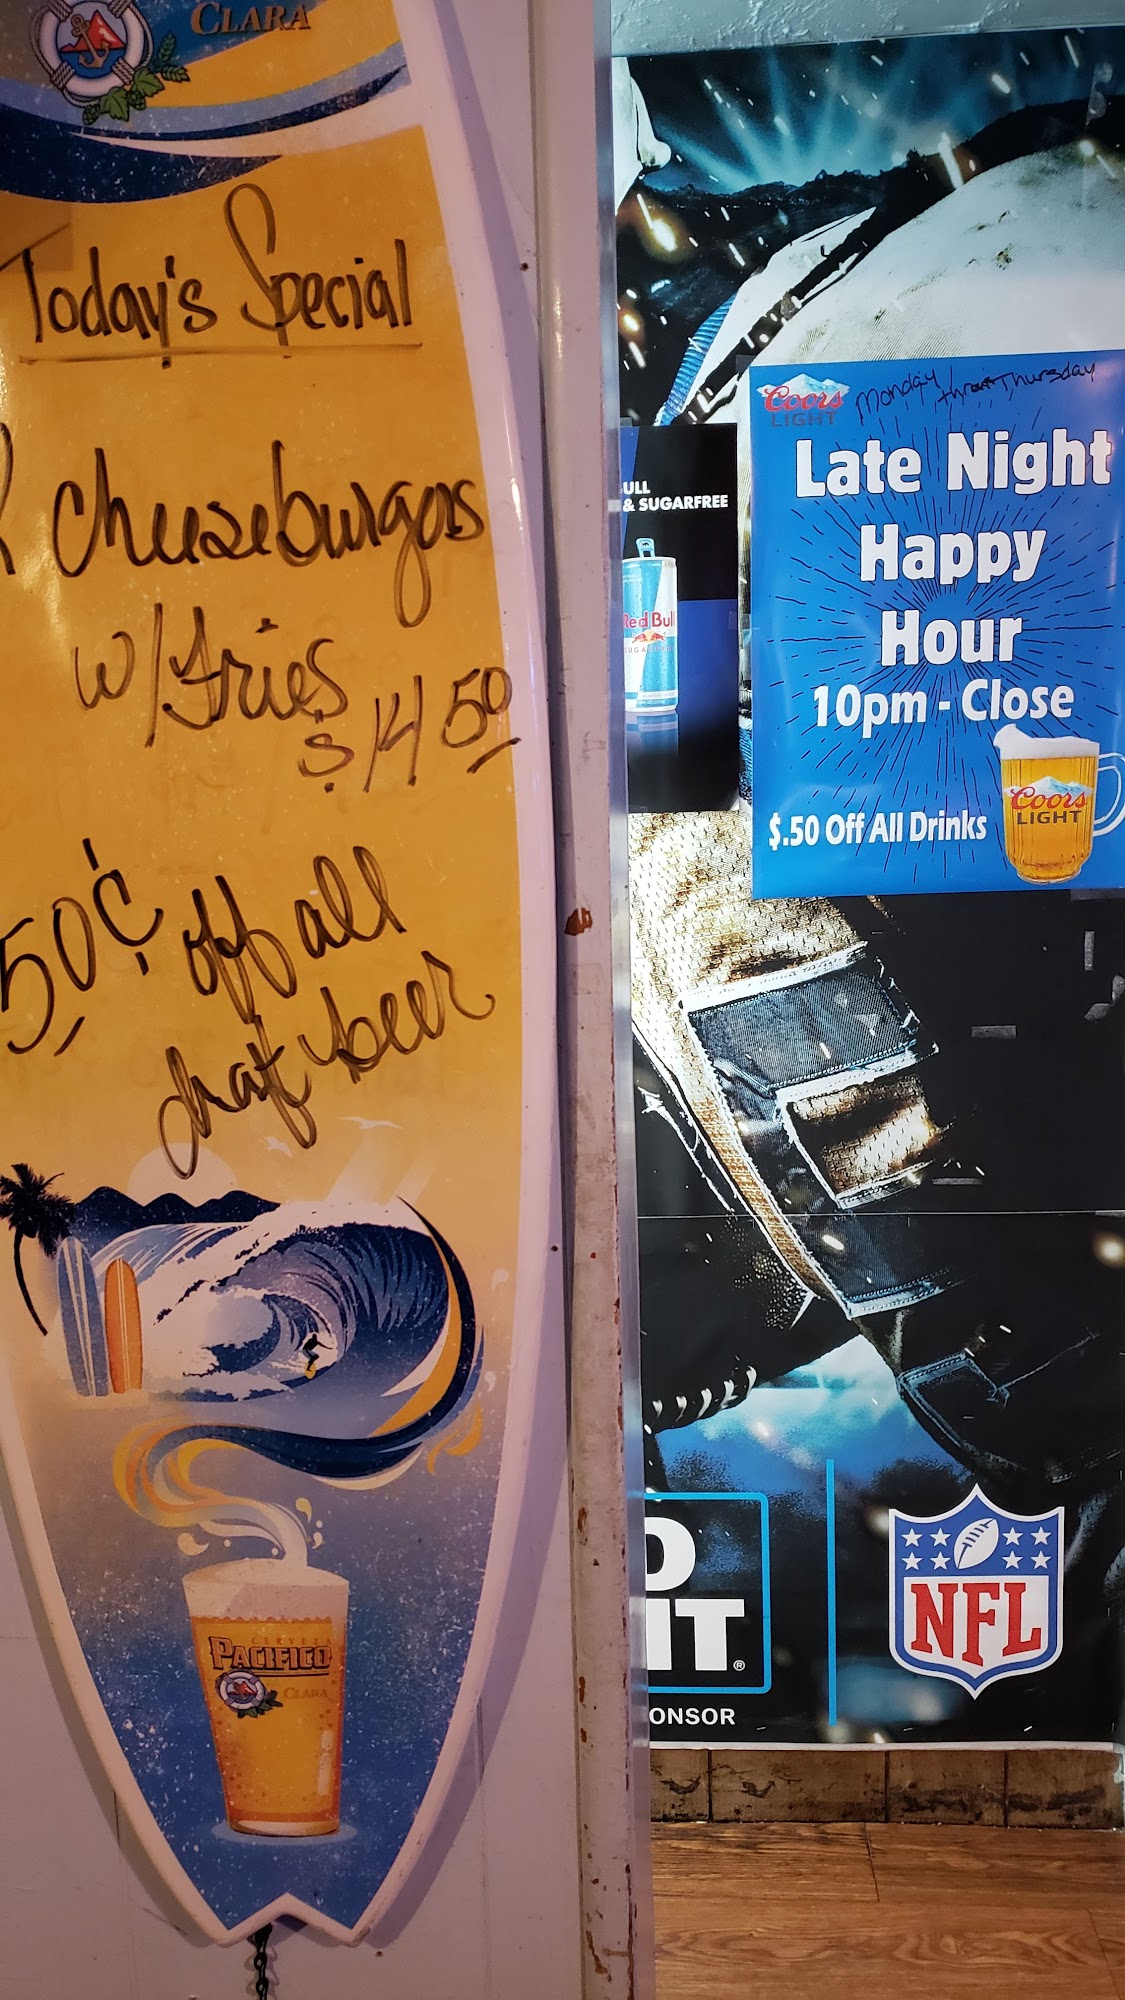 CLARA
Today's Special
Cheeseburgers
w/Fries
$14.50
50¢ off all
draft beer
CERVEZA
PACIFICO
CLARA
ULL
& SUGARFREE
Red Bull
Coors
LIGHT
Monday thru Thursday
Late Night
Happy
Hour
10pm - Close
$.50 Off All Drinks
Coors
LIGHT
D
IT®
ONSOR
NFL